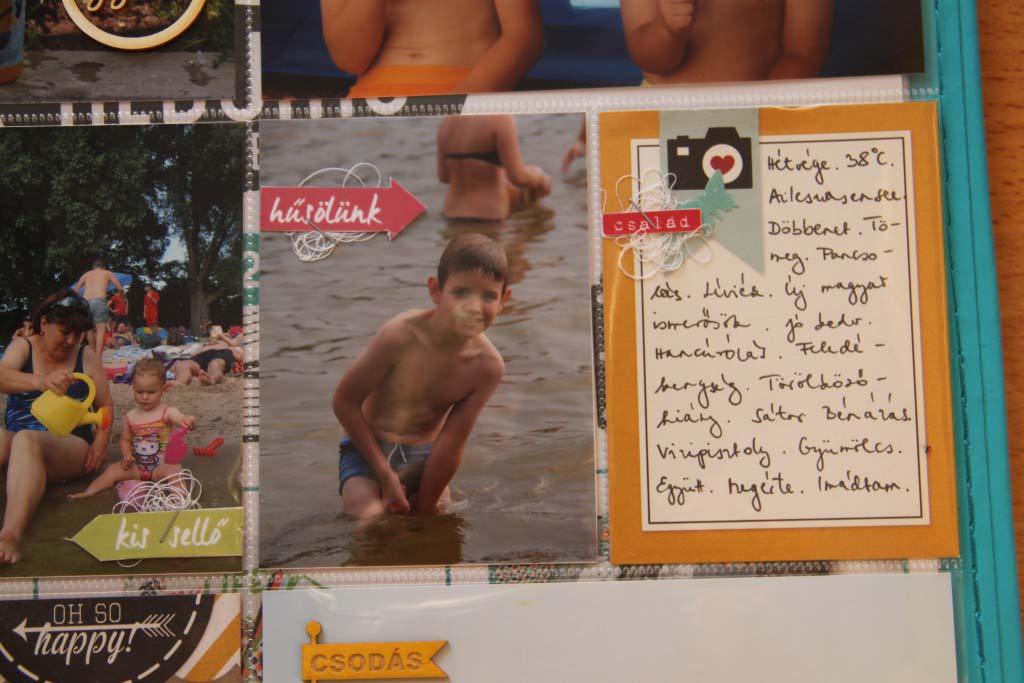 hűsölünk
család
Hétvége. 38°C.
Döbbenet. Tö-
meg. Pancso-
lás. Líviék. Új magyar
ismerősök. jó kedv.
Hancúrólás. Feledé-
kenység. Törölköző-
hiány. Sátor Bénázás.
Vízipisztoly. Gyümölcs.
Együtt. Megérte. Imádtam.
kis sellő
OH SO
happy!
CSODÁS